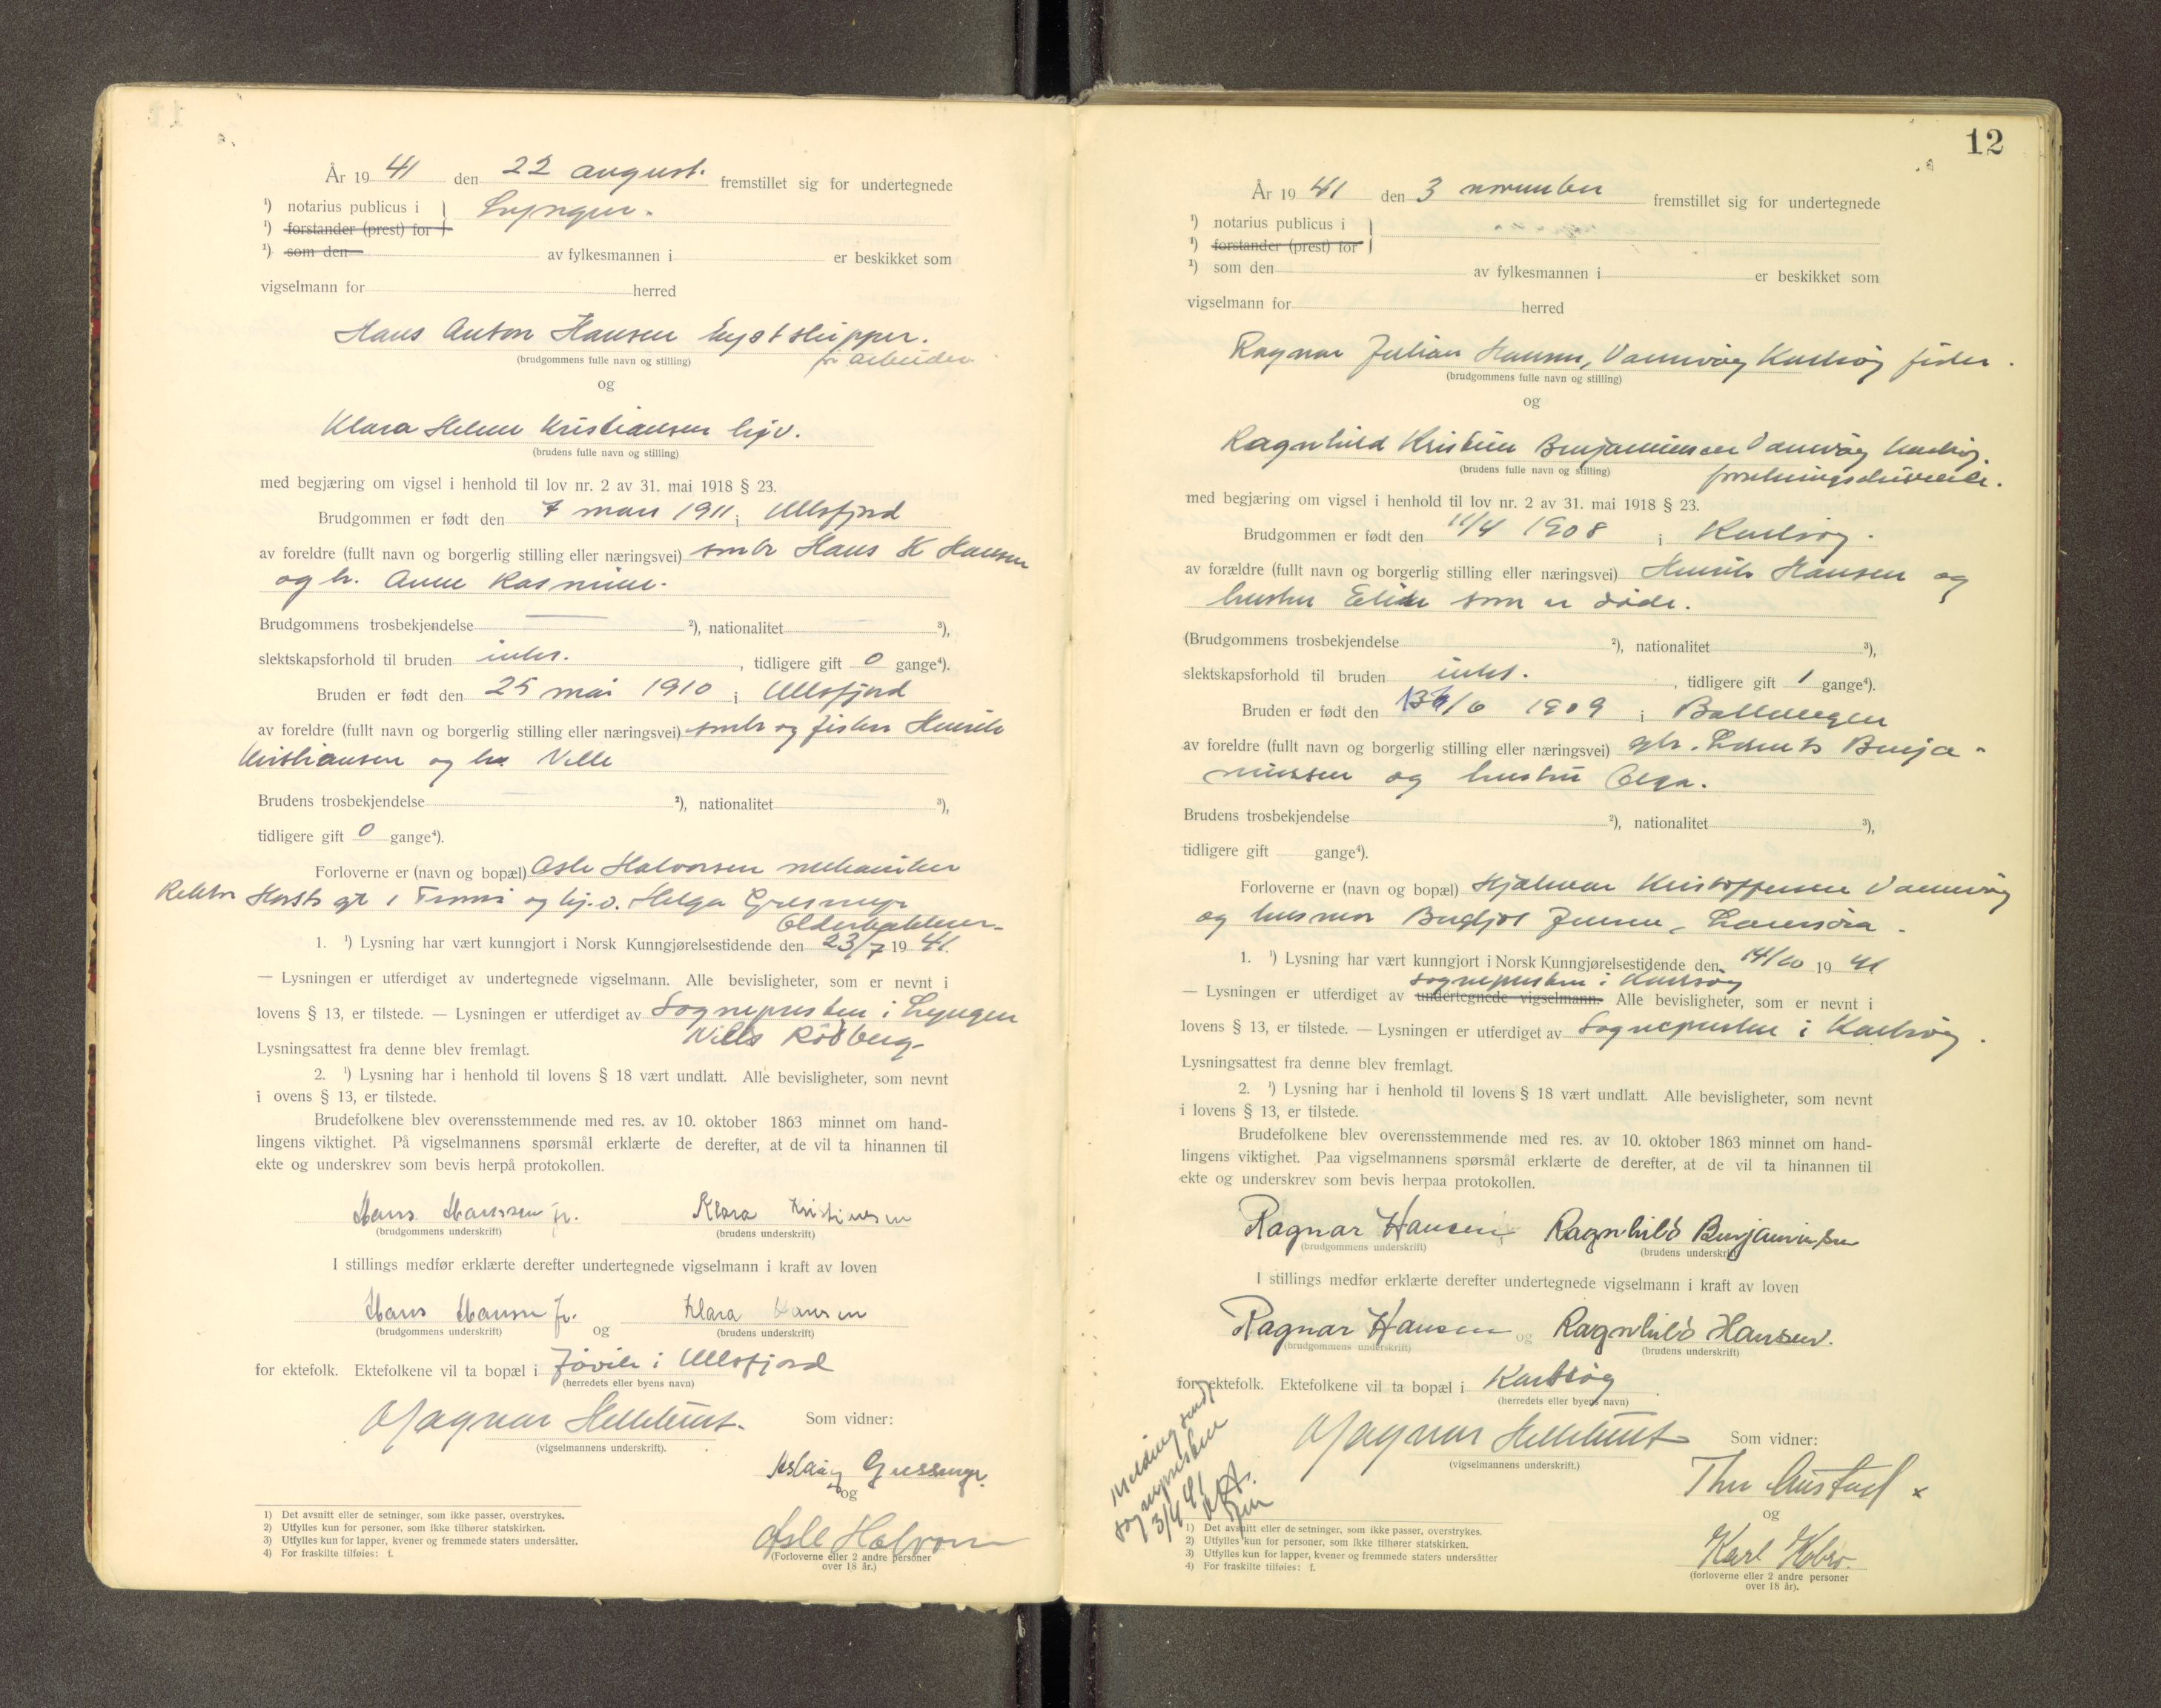 År 19 41 den 22 august. fremstillet sig for undertegnede
¹) notarius publicus i } Lyngen.
¹) forstander (prest) for
¹) som den av fylkesmannen i er beskikket som
vigselmann for herred
Hans Anton Hansen
fr. arbeider
(brudgommens fulle navn og stilling)
og
Klara Helene Kristiansen hjv.
(brudens fulle navn og stilling)
med begjæring om vigsel i henhold til lov nr. 2 av 31. mai 1918 § 23.
Brudgommen er født den 7 mars 1911 i Ullsfjord
av foreldre (fullt navn og borgerlig stilling eller næringsvei) smbr Hans K Hansen
og h. Anne Rasmine.
Brudgommens trosbekjendelse ²), nationalitet ³),
slektskapsforhold til bruden intet. , tidligere gift 0 gange⁴).
Bruden er født den 25 mai 1910 i Ullsfjord
av foreldre (fullt navn og borgerlig stilling eller næringsvei) smbr og fisker Henrik
Kristiansen og hu
Brudens trosbekjendelse ²), nationalitet ³),
tidligere gift 0 gange⁴).
Forloverne er (navn og bopæl) Asle Halvorsen mekaniker
Rektor Horsts gt 1 Tromsø og hj.v. Helga
Olderbakken
1. ¹) Lysning har vært kunngjort i Norsk Kunngjørelsestidende den 23/7 19 41.
— Lysningen er utferdiget av undertegnede vigselmann. Alle bevisligheter, som er nevnt i
lovens § 13, er tilstede. — Lysningen er utferdiget av Sognepresten i Lyngen
Nils Rödberg
Lysningsattest fra denne blev fremlagt.
2. ¹) Lysning har i henhold til lovens § 18 vært undlatt. Alle bevisligheter, som nevnt
i ovens § 13, er tilstede.
Brudefolkene blev overensstemmende med res. av 10. oktober 1863 minnet om hand-
lingens viktighet. På vigselmannens spørsmål erklærte de derefter, at de vil ta hinannen til
ekte og underskrev som bevis herpå protokollen.
Hans Hanssen jr. Klara Kristiansen
(brudgommens underskrift) (brudens underskrift)
I stillings medfør erklærte derefter undertegnede vigselmann i kraft av loven
Hans Hansen jr. og Klara Hansen
(brudgommens underskrift) (brudens underskrift)
for ektefolk. Ektefolkene vil ta bopæl i Jøvik i Ullsfjord
(herredets eller byens navn)
Magnar Hellebust. Som vidner:
(vigselmannens underskrift).
Aslaug
og
Asle Halvorsen
(Forloverne eller 2 andre personer
over 18 år.)
1) Det avsnitt eller de setninger, som ikke passer, overstrykes.
2) Utfylles kun for personer, som ikke tilhører statskirken.
3) Utfylles kun for lapper, kvener og fremmede staters undersåtter.
4) For fraskilte tilføies: f.
12
År 19 41 den 3 november fremstillet sig for undertegnede
¹) notarius publicus i }
¹) forstander (prest) for
¹) som den av fylkesmannen i er beskikket som
vigselmann for herred
Ragnar Julian Hansen, Vannvåg Karlsøy fisker.
(brudgommens fulle navn og stilling)
og
Ragnhild Kristine Benjaminsen Vannvåg Karlsøy.
forretningsdrivende.
(brudens fulle navn og stilling)
med begjæring om vigsel i henhold til lov nr. 2 av 31. mai 1918 § 23.
Brudgommen er født den 11/4 1908 i Karlsøy.
av forældre (fullt navn og borgerlig stilling eller næringsvei) Henrik Hansen og
hustru som er døde.
(Brudgommens trosbekjendelse ²), nationalitet ³),
slektskapsforhold til bruden intet. , tidligere gift 1 gange⁴).
Bruden er født den 1909 i Ballangen
av foreldre (fullt navn og borgerlig stilling eller næringsvei) gbr. Benja-
minsen og hustru Olga.
Brudens trosbekjendelse ²), nationalitet ³),
tidligere gift gange⁴).
Forloverne er (navn og bopæl) Hjalmar Kristoffersen Vannvåg
og husmor Bergljot Jensen,
1. ¹) Lysning har vært kunngjort i Norsk Kunngjørelsestidende den 14/10 19 41
sognepresten i Karlsøy
— Lysningen er utferdiget av undertegnede vigselmann. Alle bevisligheter, som er nevnt i
lovens § 13, er tilstede. — Lysningen er utferdiget av Sognepresten i Karlsøy.
Lysningsattest fra denne blev fremlagt.
2. ¹) Lysning har i henhold til lovens § 18 vært undlatt. Alle bevisligheter, som nevnt
i lovens § 13, er tilstede.
Brudefolkene blev overensstemmende med res. av 10. oktober 1863 minnet om hand-
lingens viktighet. Paa vigselmannens spørsmål erklærte de derefter, at de vil ta hinannen til
ekte og underskrev som bevis herpaa protokollen.
Ragnar Hansen Ragnhild Benjaminsen
(brudgommens underskrift) (brudens underskrift)
I stillings medfør erklærte derefter undertegnede vigselmann i kraft av loven
Ragnar Hansen og Ragnhild Hansen.
(brudgommens underskrift) (brudens underskrift)
for ektefolk. Ektefolkene vil ta bopæl i Karlsøy
(herredets eller byens navn)
Magnar Hellebust Som vidner:
(vigselmannens underskrift.)
Thor
og
Karl Kobro.
(forloverne eller 2 andre personer
over 18 år).
Melding sendt
sognepresten
1) Det avsnitt eller de setninger, som ikke passer, overstrykes.
2) Utfylles kun for personer, som ikke tilhører statskirken.
3) Utfylles kun for lapper, kvener og fremmede staters undersåtter
4) For fraskilte tilføies: f.